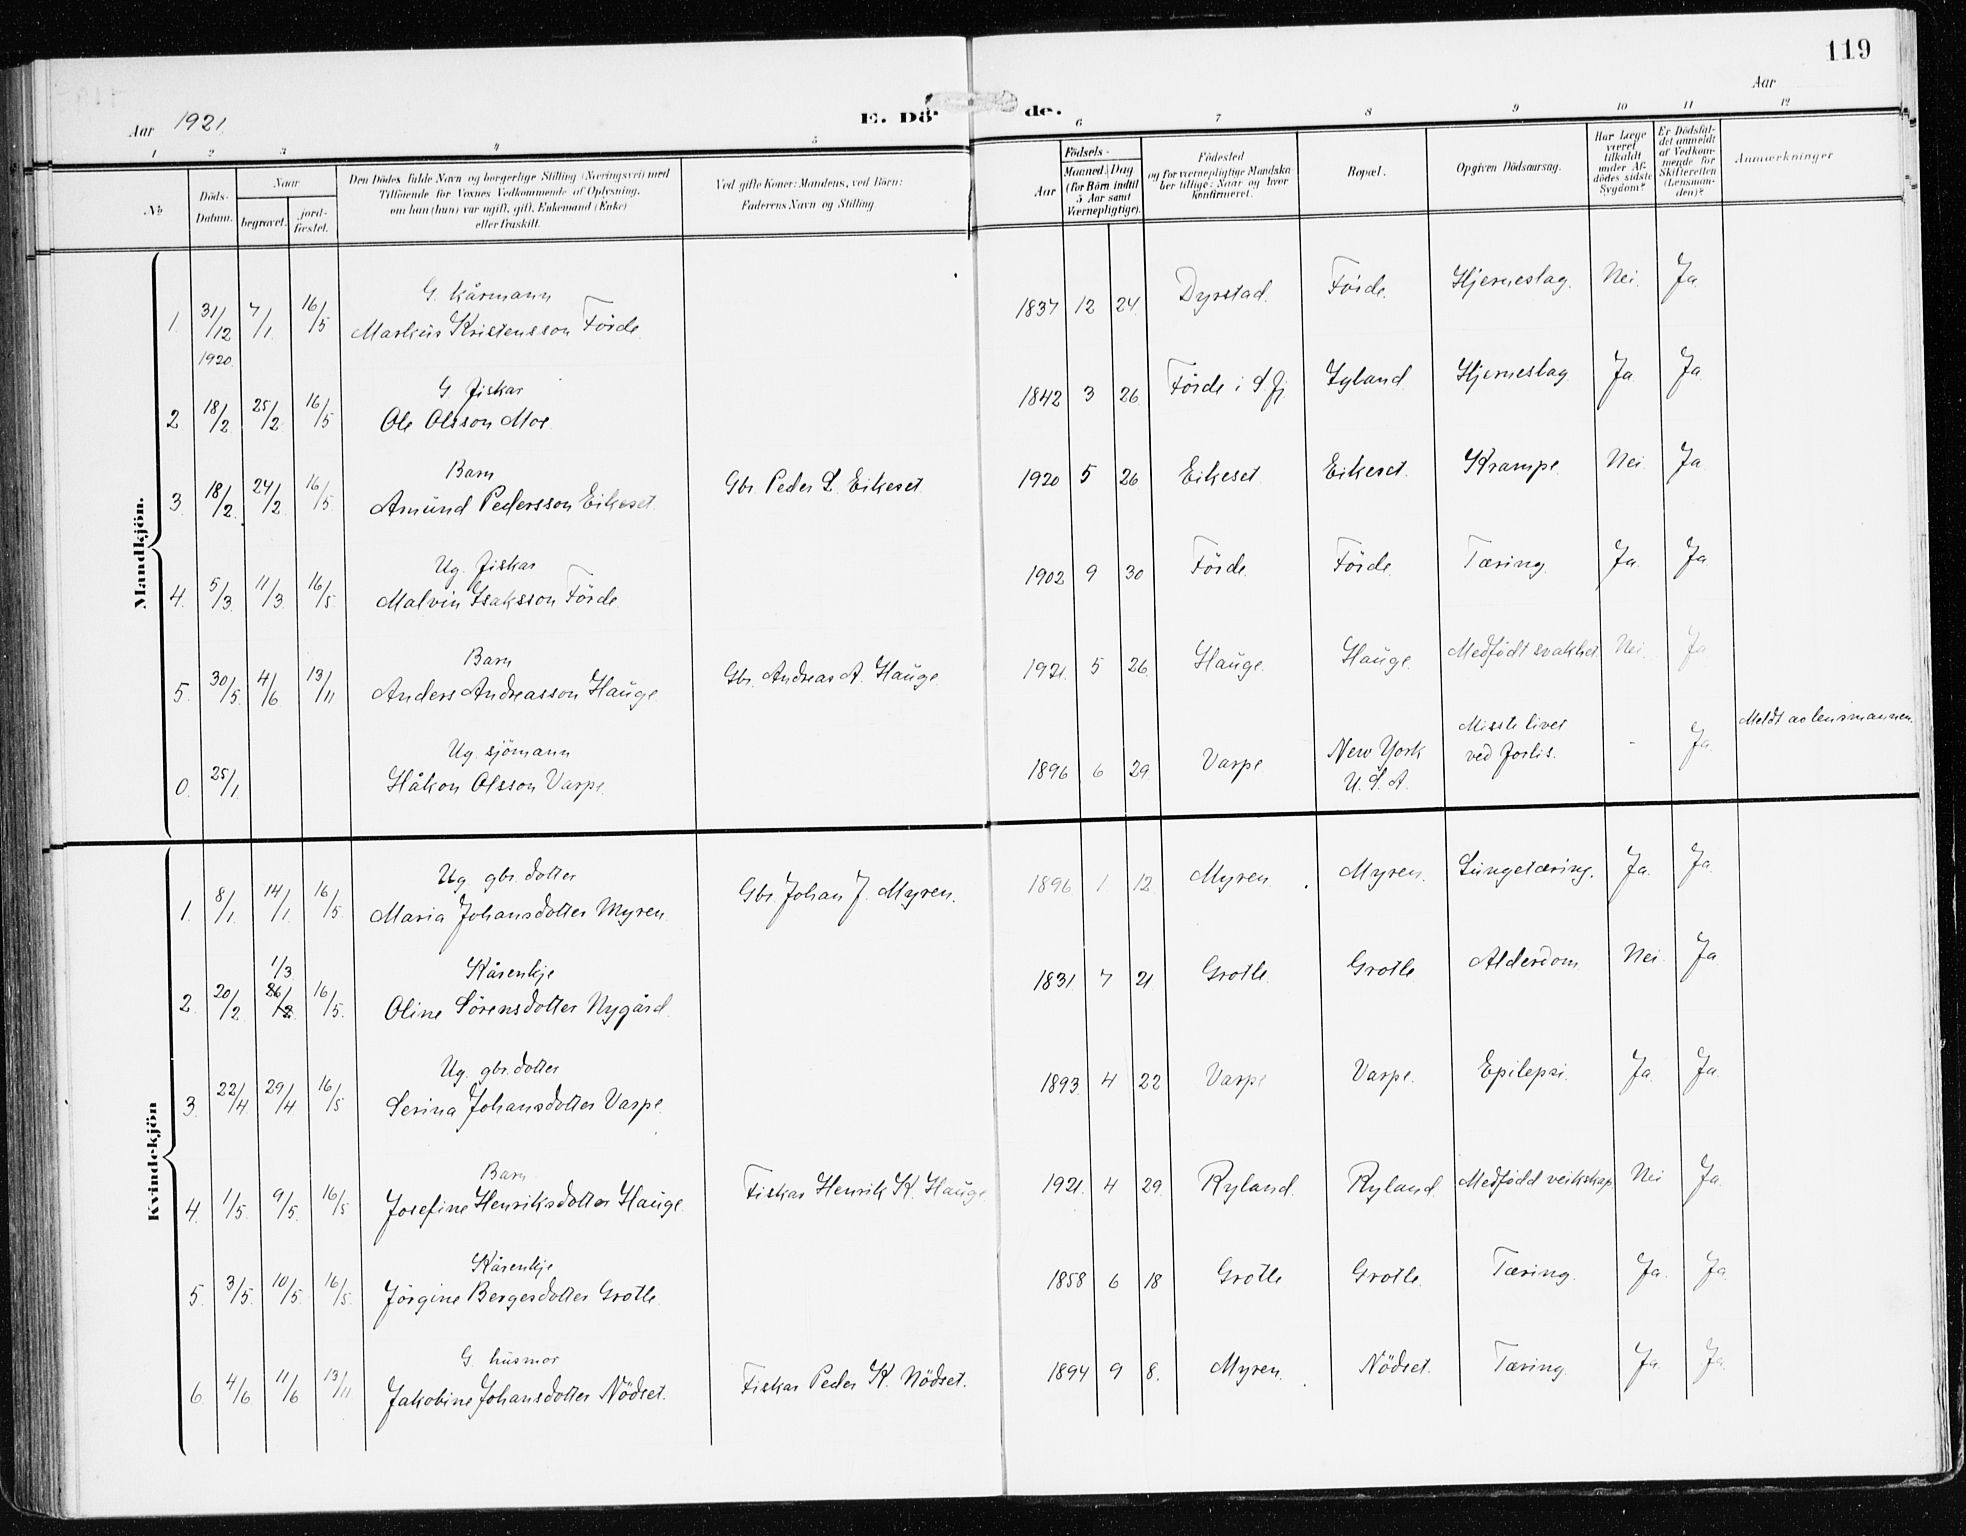 119
Aar 1921.
E. Dö de.
Aar
1 2 3 4 5 6 7 8 9 10 11 12
No
Döds-
Datum.
Naar
begravet.
jord-
fæstet.
Den Dödes fulde Navn og borgerlige Stilling (Næringsvei) med
Tilföiende for Voxnes Vedkommende af Oplysning,
om han (hun) var ugift, gift, Enkemand (Enke)
eller fraskilt.
Ved gifte Koner: Mandens, ved Börn:
Faderens Navn og Stilling
Födsels-
Aar
Maaned. Dag
(for Börn indtil
5 Aar samt
Værnepligtige).
Födested
og for værnepligtige Mandska-
ber tillige: Naar og hvor
konfirmeret.
Bopæl.
Opgiven Dödsaarsag.
Har Læge
været
tilkaldt
under Af-
dödes sidste
Sygdom?
Er Dödsfal-
det anmeldt
af Vedkom-
mende for
Skifteretten
(Lensman-
den)?
Anmærkninger
Mandkjön.
1 31/12 1920. 7/1. 16/5 G. kårmann
Markus Kristensson Förde. 1837 12 24. Dyrstad. Förde. Hjerneslag. Nei. Ja.
2 18/2. 25/2. 16/5 G. fiskar
Ole Olsson Moe. 1842 3 26. Förde i S.Fj. Igland. Hjerneslag. Ja. Ja.
3. 18/2. 24/2. 16/5 Barn
Amund Pedersson Eikeset. Gbr. Peder L. Eikeset. 1920 5 26. Eikeset. Eikeset. Krampe. Nei. Ja.
4. 5/3. 11/3. 16/5 Ug. fiskar
Malvin Isaksson Förde. 1902 9 30 Förde. Förde. Tæring. Ja. Ja.
5. 30/5. 4/6. 13/11 Barn
Anders Andreasson Hauge. Gbr. Andreas A. Hauge. 1921. 5 26. Hauge. Hauge. Medfödt svakhet. Nei. Ja.
0. 25/1. Ug. sjömann
Håkon Olsson Varpe. 1896 6 29 Varpe. New York
U.S.A. Misste livet
ved forlis. - Ja. Meldt av lensmannen.
Kvindekjön
1. 8/1. 14/1. 16/5. Ug. gbr. dotter
Maria Johansdotter Myren Gbr. Johan J. Myren. 1896 1. 12. Myren. Myren. Lungetæring. Ja. Ja.
2. 20/2. 1/3 26/2. 16/5. Kårenkje
Oline Sörensdotter Nygård. 1831 7 21. Grotle. Grotle Alderdom Nei. Ja
3. 22/4 29/4 16/5 Ug. gbr. dotter
Serina Johansdotter Varpe. 1893. 4 22 Varpe Varpe. Epilepsi. Ja. Ja.
4. 1/5. 9/5. 16/5 Barn
Josefine Henriksdotter Hauge. Fiskar Henrik K. Hauge. 1921. 4 29. Ryland. Ryland. Medfödd veikskap. Nei Ja.
5. 3/5. 10/5. 16/5. Kårenkje
Jörgine Bergesdotter Grotle. 1858 6 18 Grotle Grotle. Tæring. Ja. Ja.
6. 4/6. 11/6 13/11 G. husmor
Jakobine Johansdotter Nödset. Fiskar Peder K. Nödset. 1894 9 8. Myren. Nödset. Tæring. Ja. Ja.